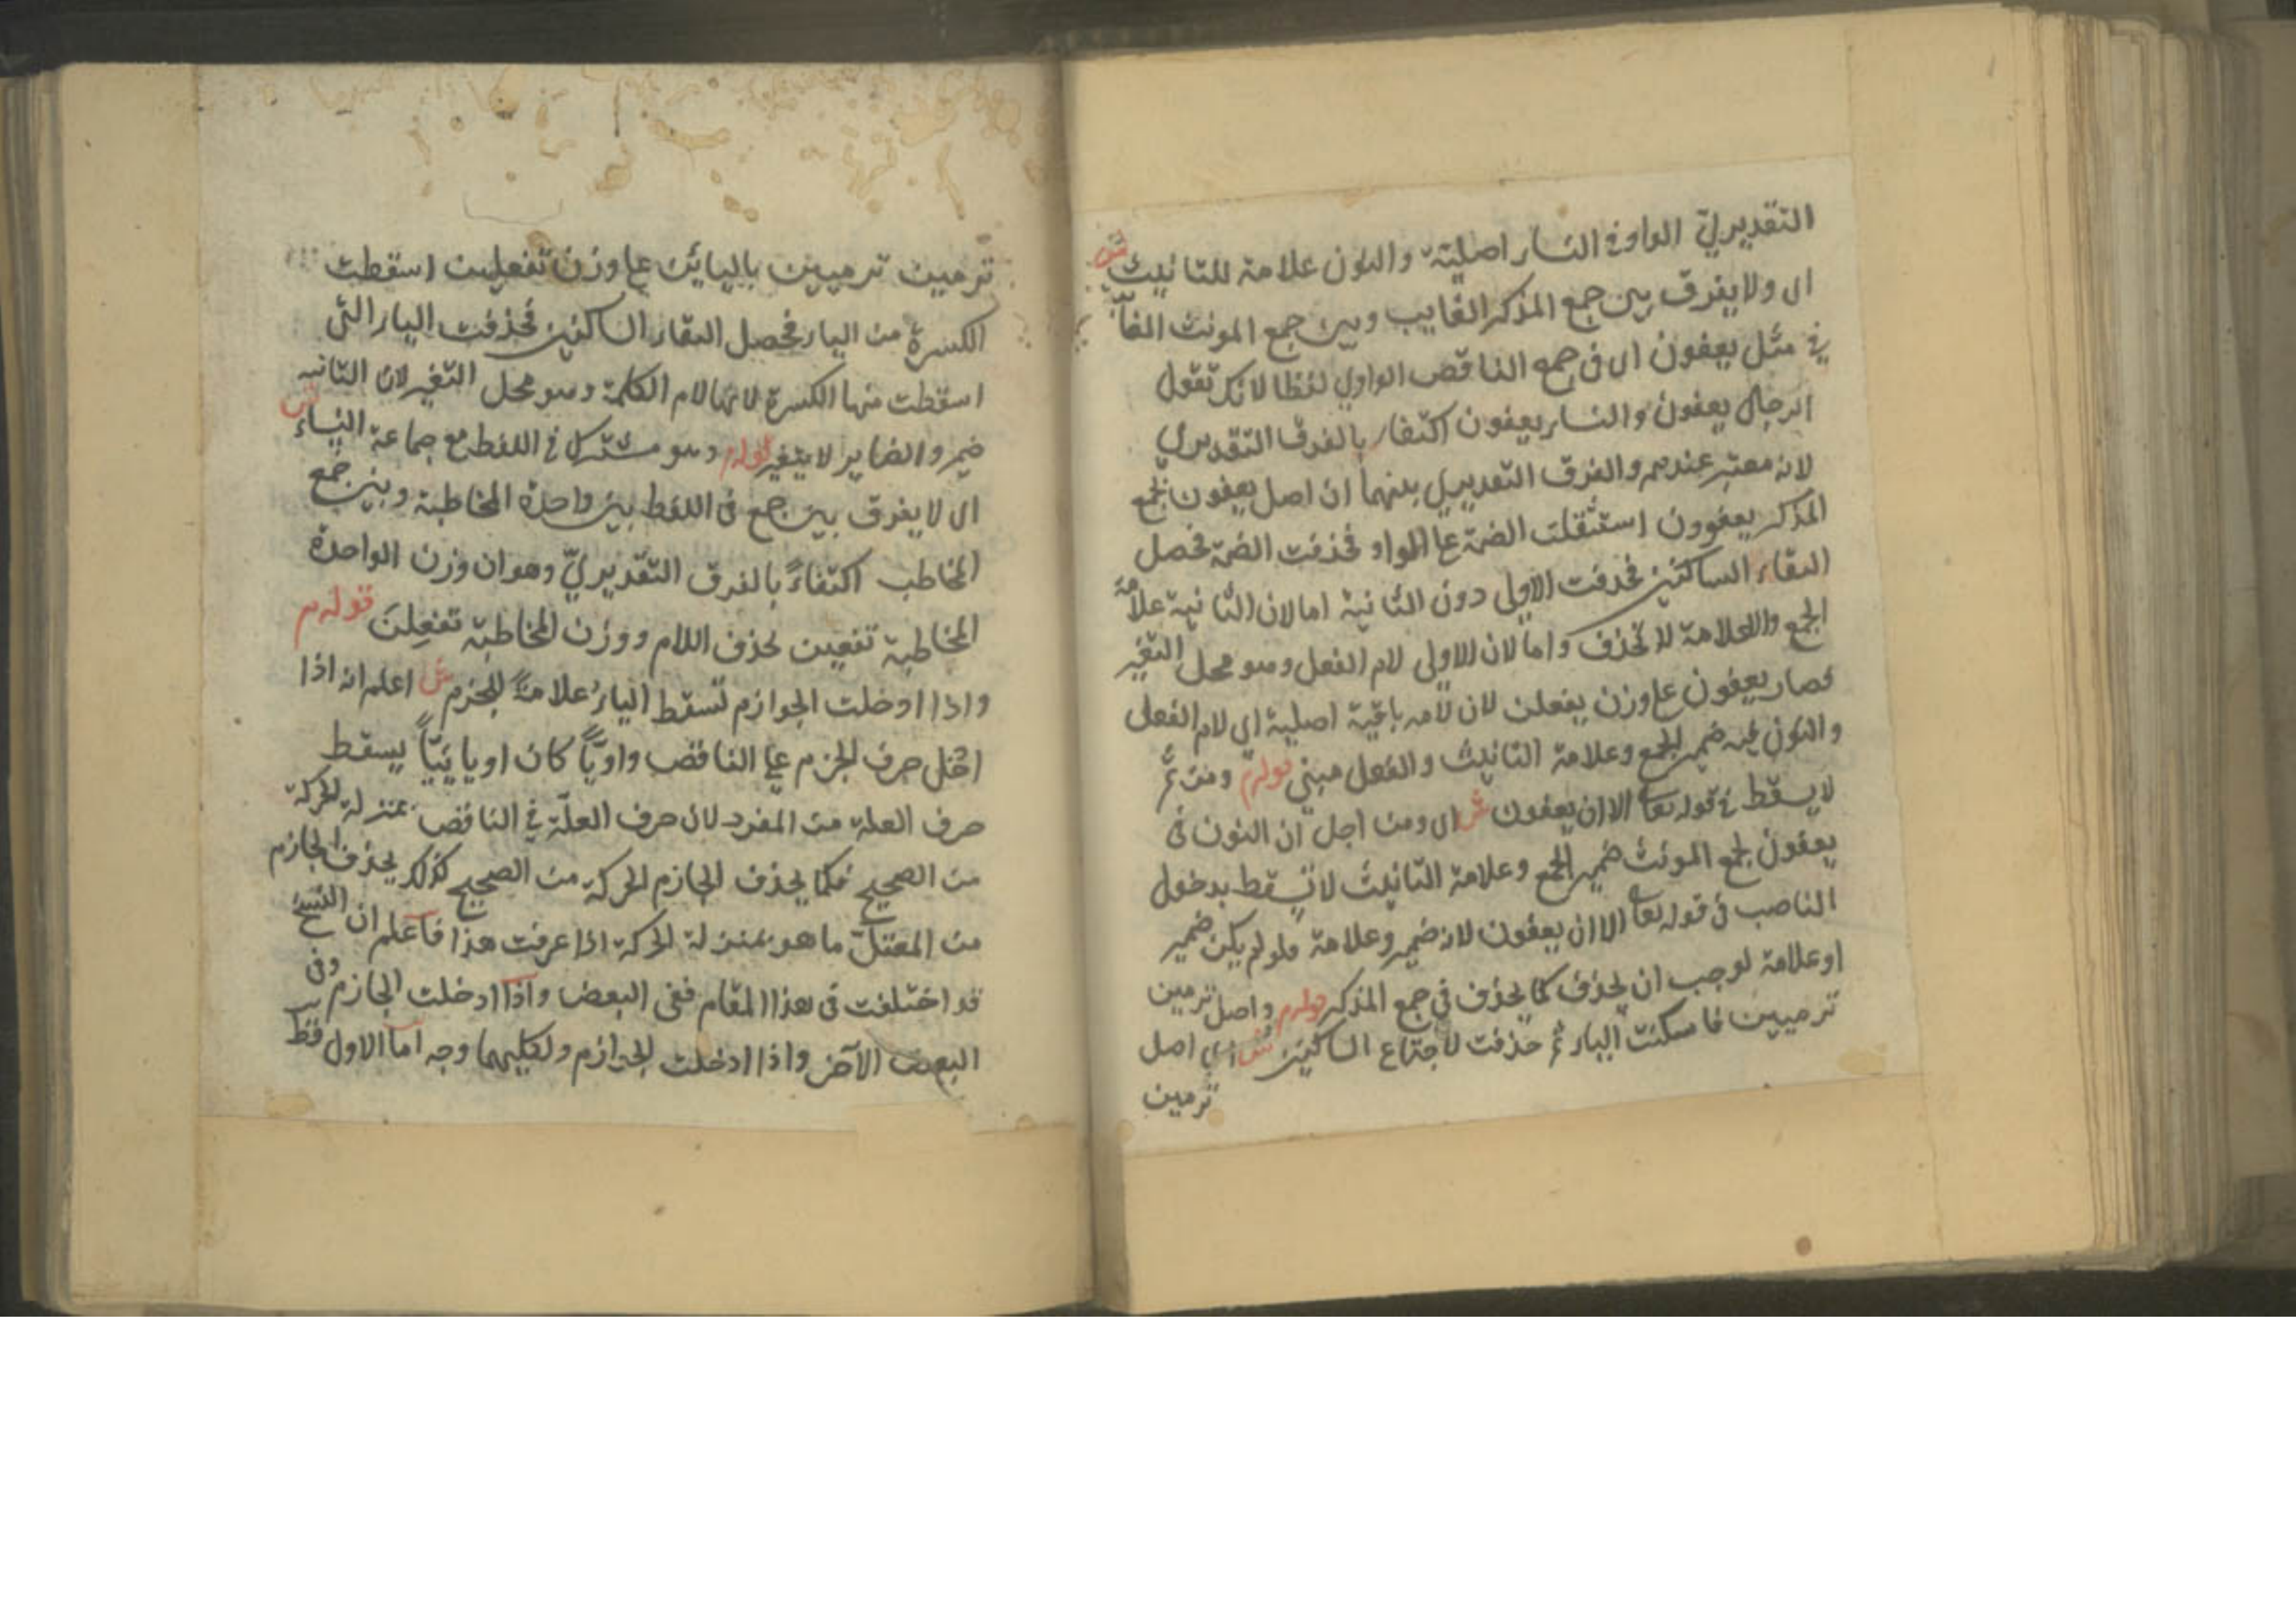 التقديريّ الواو فى النساء اصلية والنون علامة للتانيث ش
اى ولا يفرق بين جمع المذكر الغايب وبين جمع المونث الغا
فى مثل يعفون اى فى جمع الناقص الواوي لفظا لانك تقول
الرجال يعفون والنساء يعفون اكتفاء بالفرق التقديرى
لانه معتبر عندهم والفرق التقديرى بينهما ان اصل يعفون لجمع
المذكر يعفوون استثقلت الضمة على الواو فحذفت الضمة فحصل
التقاء الساكنين فحذفت الاولى دون الثانية اما لان الثانية علامة
الجمع والعلامة لا تحذف واما لان الاولى لام الفعل وهو محل التغير
فصار يعفون على وزن يفعلن لان لامه باقية اصلية اى لام الفعل
والنون فيه ضمير الجمع وعلامة التانيث والفعل مبنى قوله م ومن ثم
لا يسقط فى قوله تعا الا ان يعفون ش اى ومن اجل ان النون فى
يعفون لجمع المونث ضمير الجمع وعلامة التانيث لا تسقط بدخول
الناصب فى قوله تعا الا ان يعفون لانه ضمير وعلامة ولو لم يكن ضمير
او علامة لوجب ان يحذف كما يحذف فى جمع المذكر قوله م واصل ترمين
ترميين فاسكنت الياء ثم حذفت لاجتماع الساكنين ش اى اصل
ترمين
ترمين ترميين باليائين على وزن تفعلين اسقطت
الكسرة من الياء فحصل التقاء الساكنين فحذفت الياء التى
اسقطت منها الكسرة لانها لام الكلمة وهو محل التغير لان الثانيه
ضمير والضماير لا يتغير قوله م وهو مشترك فى اللفظ مع جماعة النساء ش
اى لا يفرق بين جمع فى اللفظ بين واحدة المخاطبة وبين جمع
المخاطب اكتفاءً بالفرق التقديريّ وهو ان وزن الواحدة
المخاطبة تفعين بحذف اللام ووزن المخاطبة تفعِلنَ قوله م
واذا ادخلت الجوازم تسقط الياءُ علامةً للجزم ش اعلم انه اذا
ادخل حرف الجزم على الناقص واويّاً كان او يائيّاً يسقط
حرف العلة من المفرد لان حرف العلّة فى الناقص بمنزلة الحركة
من الصحيح فكما يحذف الجازم الحركة من الصحيح كذلك يحذف الجازم
من المعتلّ ما هو بمنزلة الحركة اذا عرفت هذا فاعلم ان النسخ
قد اختلفت فى هذا المقام ففى البعض واذا ادخلت الجازم وفى
البعض الآخر واذا ادخلت الجوازم ولكليهما وجه اما الاول فقط